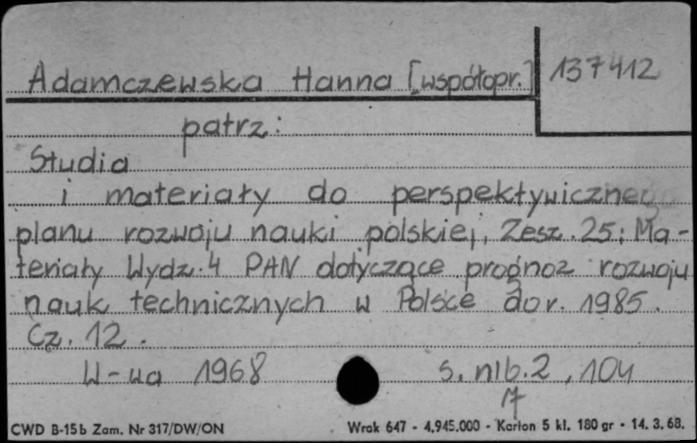 Adamczewska Hanna [współopr.] 137412
patrz:
Studia
i materiały do perspektywicznego
planu rozwoju nauki polskiej, Zesz. 25: Ma-
teriały Wydz. 4 PAN dotyczące prognoz rozwoju
nauk technicznych w Polsce do r. 1985.
Cz. 12.
W-wa 1968 s. nlb. 2, 104
17
CWD B-15b Zam. Nr 317/DW/ON Wrak 647 - 4.945.000 - Karton 5 kl. 180 gr - 14. 3. 68.